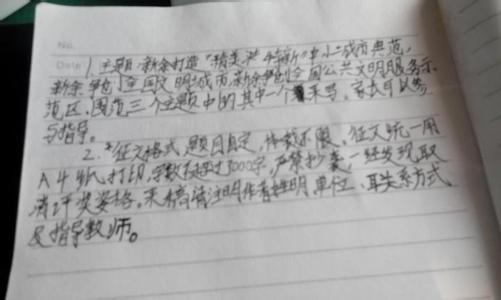 No.
Date 1. 主题：新余打造“精美 特新”中小城市典范，
新余争创全国文明城市，新余争创全国公共文明服务示
范区，围范三个主题中的其中一个来写，家长可以参
与指导。
2. *征文格式，题目自定，体裁不限，征文统一用
A4纸打印，字数不超过3000字，严禁抄袭一经发现取
消评奖资格。来稿请注明作者姓明、单位、联系方式、
及指导教师。